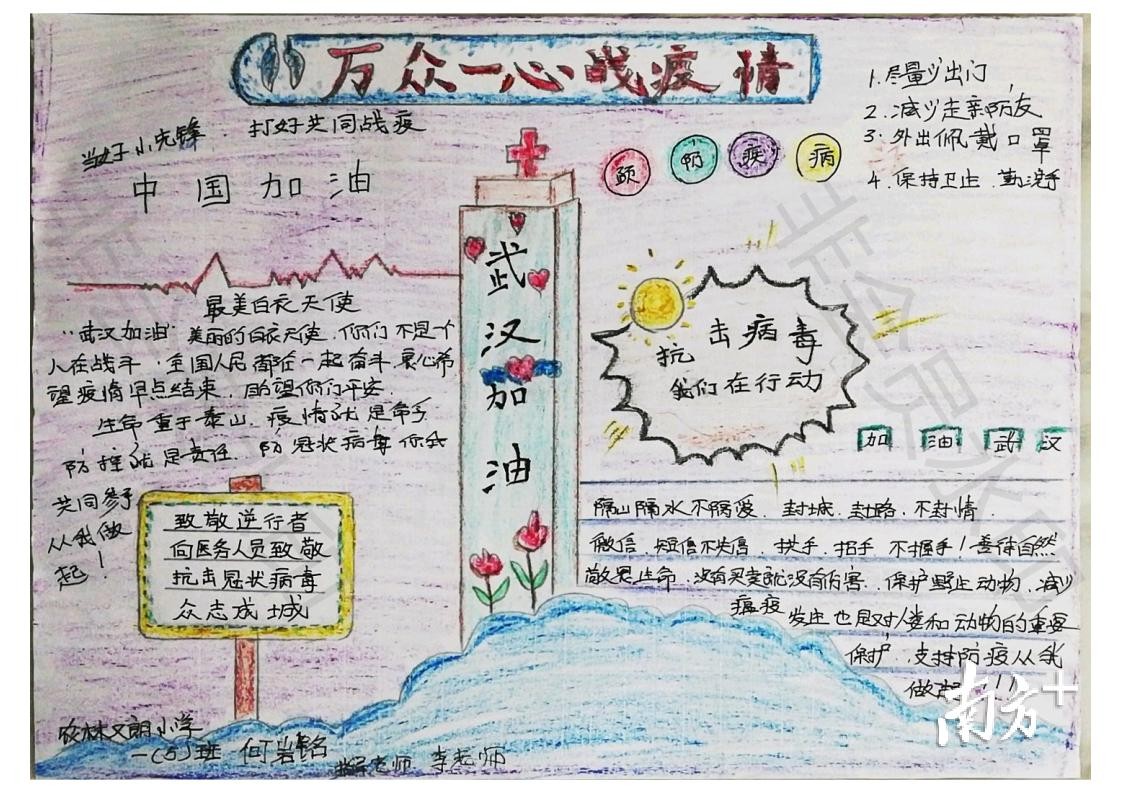 万众一心战疫情
当好小先锋 打好共同战疫
中国加油
最美白衣天使
"武汉加油"美丽的白衣天使,你们不是个
人在战斗,全国人民都在一起奋斗,衷心希
望疫情早点结束,盼望你们平安
生命重于泰山,疫情就是命令
防控就是责任,防冠状病毒你我
共同参予
从我做
起!
致敬逆行者
向医务人员致敬
抗击冠状病毒
众志成城
武
汉
加
油
预 防 疾 病
1.尽量少出门
2.减少走亲防友
3.外出佩戴口罩
4.保持卫生 勤洗手
抗击病毒
我们在行动
加 油 武 汉
隔山隔水不隔爱,封城,封路,不封情.
微信,短信不失信,拱手,招手,不握手!善待自然
敬畏生命,没有买卖就没有伤害,保护野生动物,减少
瘟疫
发生也是对人类和动物的重要
保护,支持防疫从我
做起!!!
农林又朗小学
一(5)班 何岩铭
老师 李老师
南方+
非会员水印